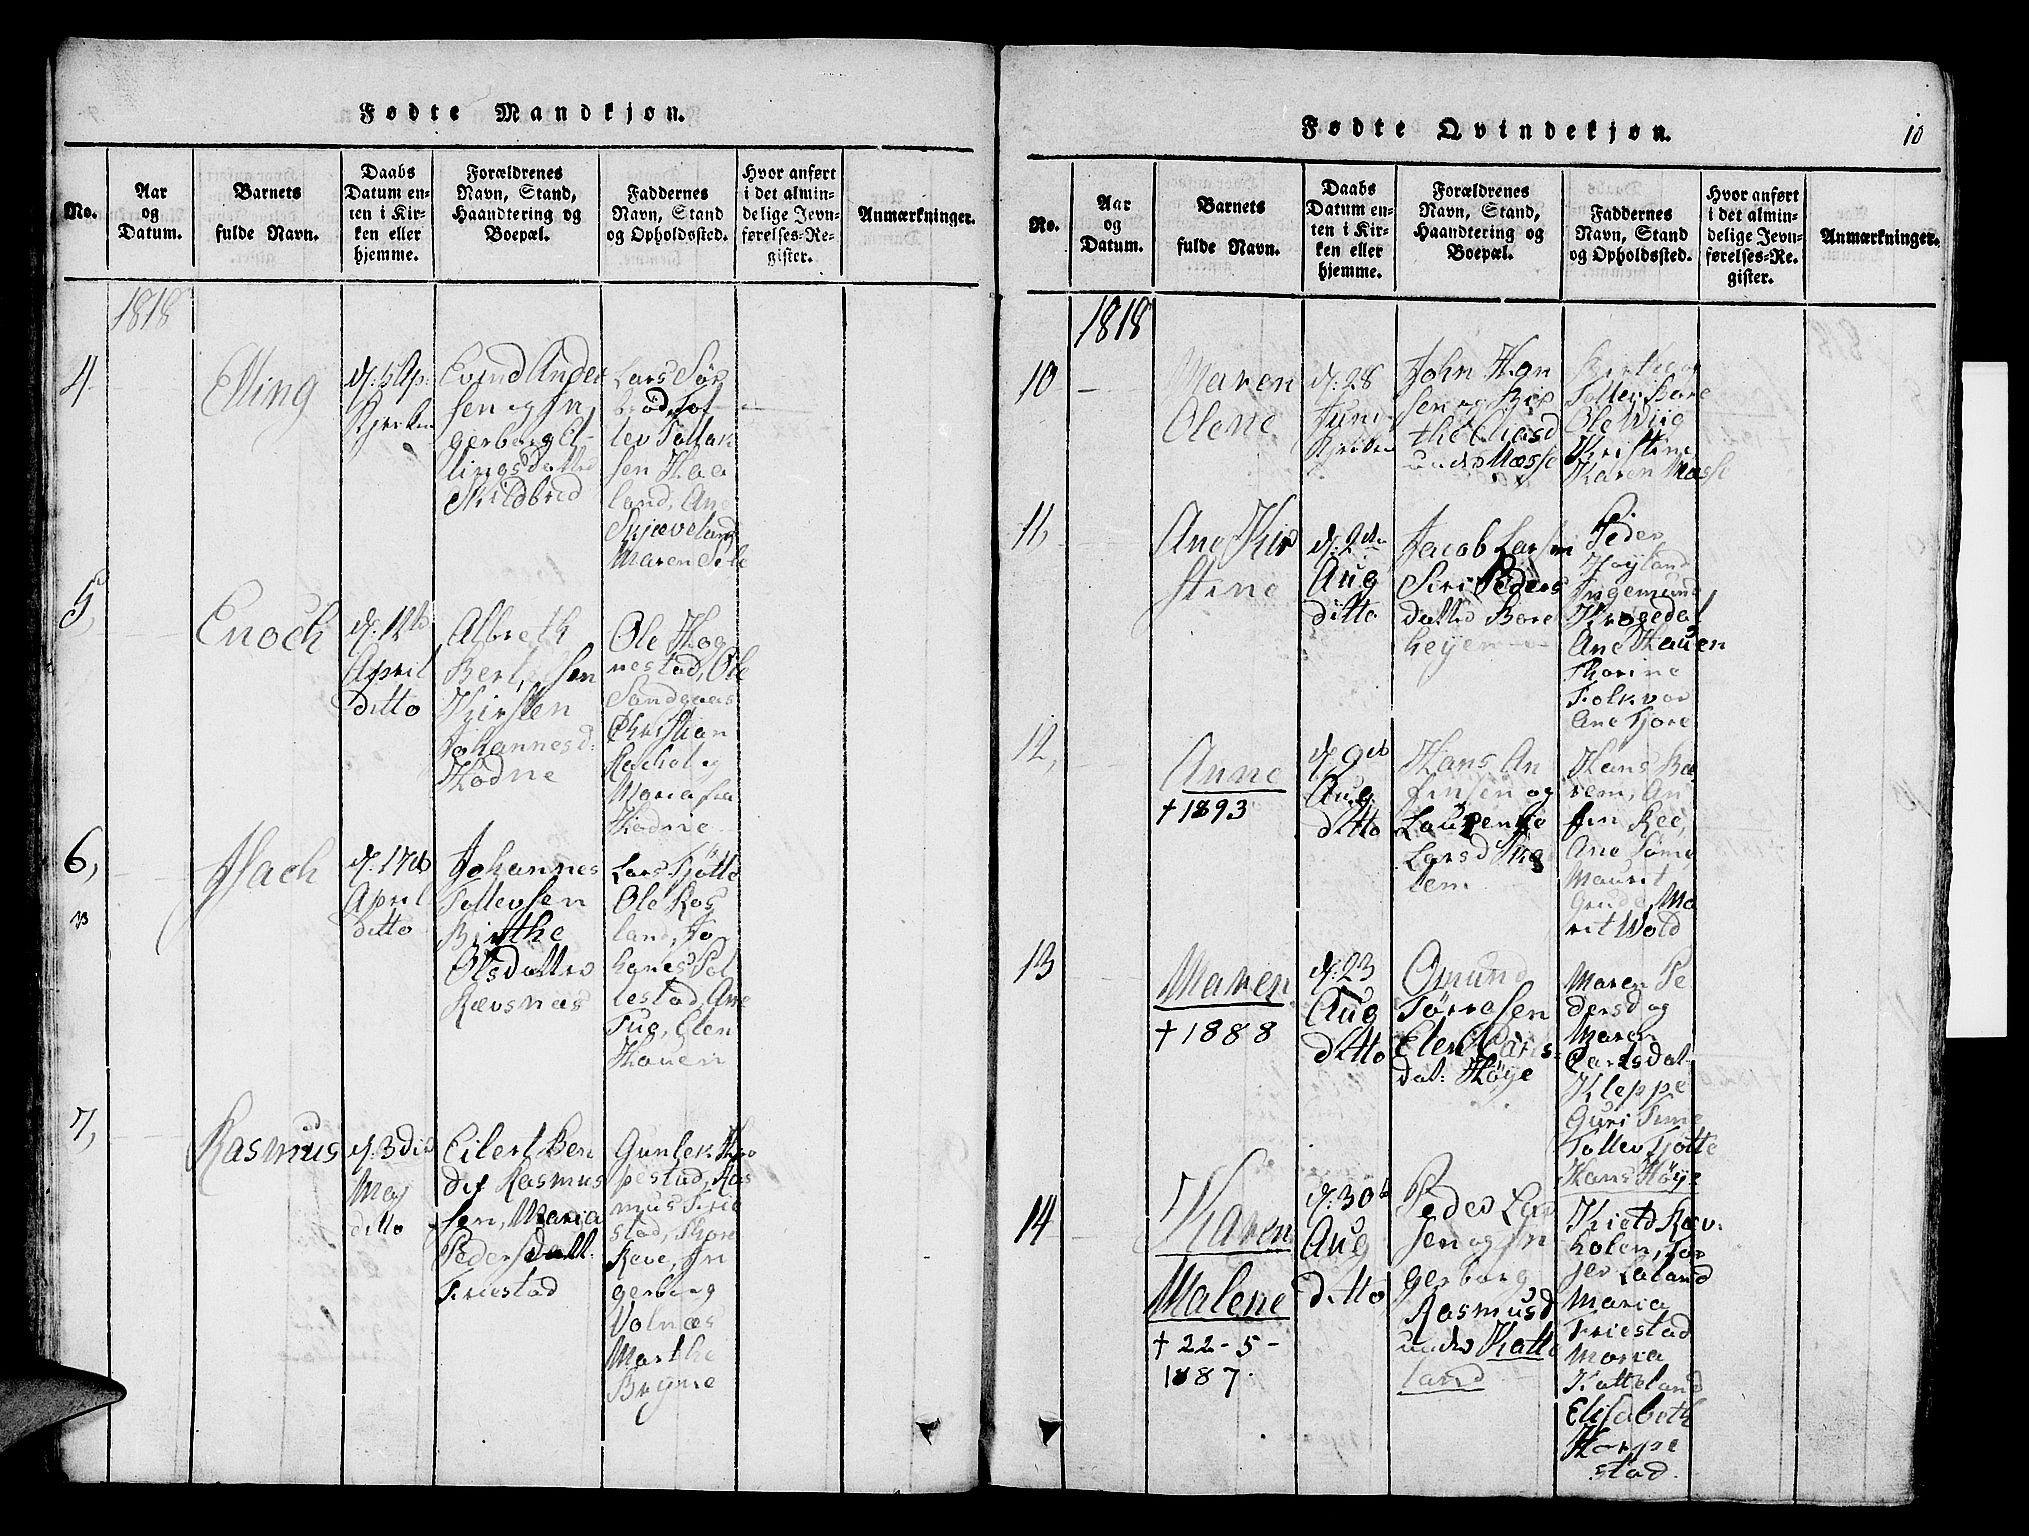 Fødte Mandkjøn.
No.
Aar
og
Datum.
Barnets
fulde Navn.
Daabs
Datum en-
ten i Kir-
ken eller
hjemme.
Forældrenes
Navn, Stand,
Haandtering og
Boepæl.
Faddernes
Navn, Stand
og Opholdssted.
Hvor anført
i det almin-
delige Jevn-
førelses-Re-
gister.
Anmærkninger.
1818
4
Elling
d. 5 Ap:
Kjerken
Evind Ander
sen og In
gerborg El-
lingsdatter
Skildbred
Lars Sør
brød, Tol
lev Tollan
sen Haa
land, Ane
Skjæveland
Maren Sele
5,
Enoch
d. 12te
April
ditto
Albreth
Bertelsen
Kirsten
Johannesd:
Hodne
Ole Hog
nestad, Ole
Sandgaaes
Christian
Rachel og
Maria fra
Hodne
6,
Isach
d. 17de
April
ditto
Johannes
Tollevsen
Birthe
Olsdatter
Rævsnæs
Lars Tjøtte
Ole Ros
land, Jo
hanes Pol
lestad, Ane
Tug, Elen
Hauen
7,
Rasmus
d. 3die
May
ditto
Eilert Ben
dix Rasmus
sen, Maria
Pedersdatt:
Friestad
Gunlek Harpestad
Ras
mus Frie
stad, Thor
Reve, In
gerborg
Volnæs
Marthe
Bryne
Fødte Qvindekjøn.
10
No.
Aar
og
Datum.
Barnets
fulde Navn.
Daabs
Datum en-
ten i Kir-
ken eller
hjemme.
Forældrenes
Navn, Stand,
Haandtering og
Boepæl.
Faddernes
Navn, Stand
og Opholdssted.
Hvor anført
i det almin-
delige Jevn-
førelses-Re-
gister.
Anmærkninger.
1818
10
Maren
Olene
d. 28
Juni
Kjerken
John Han
sen og Bir
the Chasd
under Næsse
Birthe og
Tollev Bore
Ole Wiig
Kristine
Karen Næsse
11,
Ane Kir
stine
d. 2den
Aug
ditto
Jacob Larsen
Siri Peders
datter Bore
heyen
Peder
Høyland
Ingemund
Krogedal
Ane Hauen
Thorine
Folkvor
Ane Fjore
12,
Anne
† 1893
d. 9de
Aug.
ditto
Hans An
finsen og
Laurentse
Larsd
Hans Bæ
rem, An
fin Ree,
Ane Time
Maurit
Grude, Ma
rit Wold
13
Maren
† 1888
d. 23
Aug
ditto
Omund
Tørresen
Elen Lars-
dat: Høye
Maren Pe
dersd og
Maren
Carlsdat
Kleppe
Guri Time
Tollev Tjøtte
Hans Høye
14
Karen
Malene
† 22-5-
1887.
d. 30te
Aug
ditto
Peder Lar
sen og In
gerborg
Rasmusd
under Hatte
land
Kield Ræv-
holen, Tor
jer Laland
Maria
Friestad
Maria
Hatteland
Elisabeth
Harpe
stad.